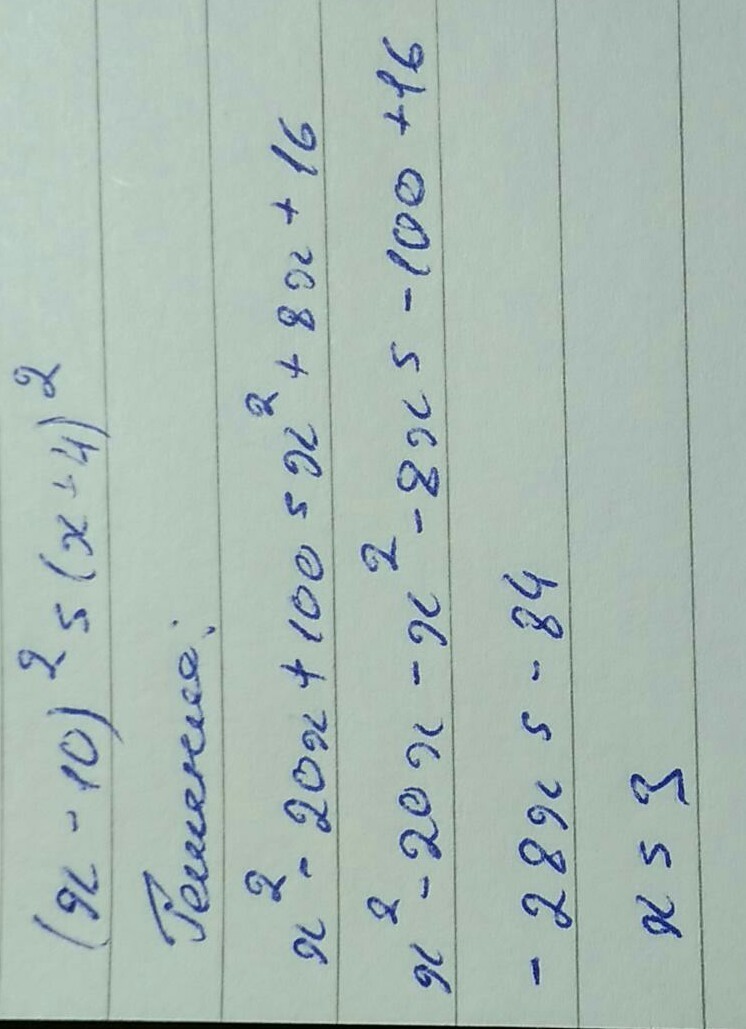 (x - 10)² = (x + 4)²
Решение:
x² - 20x + 100 = x² + 8x + 16
x² - 20x - x² - 8x = -100 + 16
- 28x = - 84
x = 3